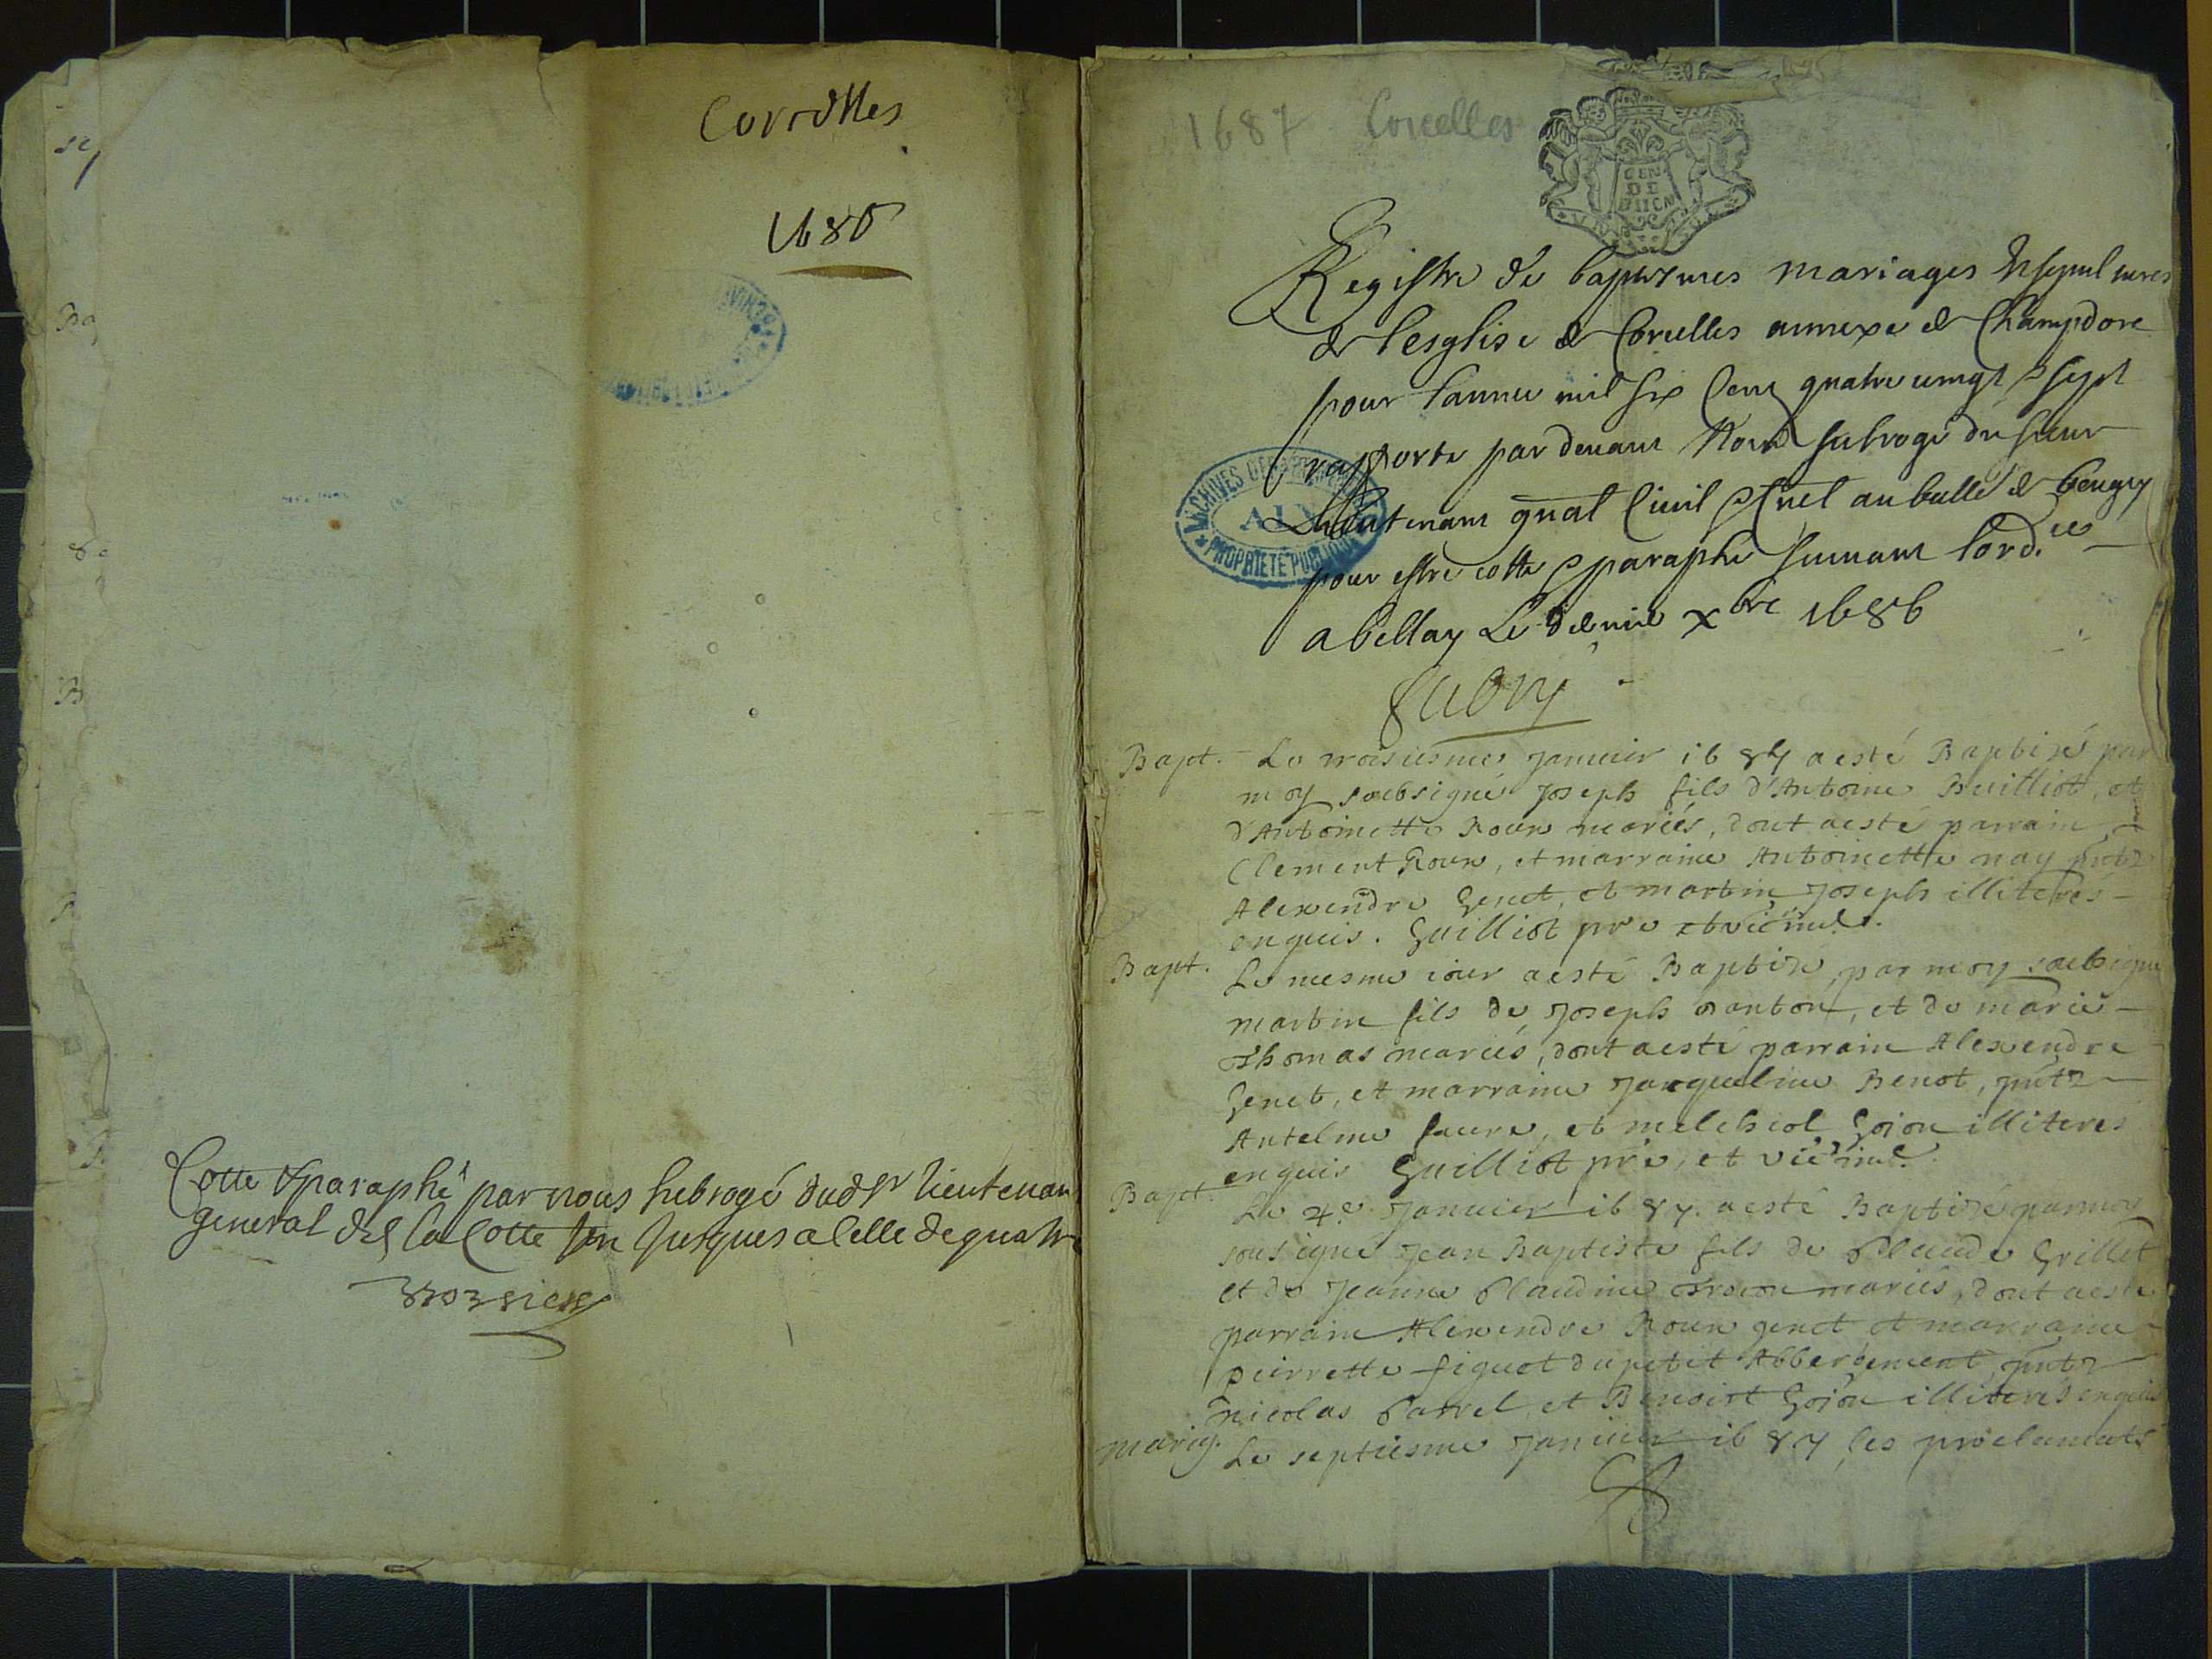 Corcelles
1686
Cotte & paraphé par nous subrogé dud Sr lieutenan
general des la Cotte un Jusques a Celle de quatre
1687 Corcelles
GEN
DE
Registre de baptesmes mariages & sepultures
de l'esglise de Corcelles annexe de Champdore
pour l'annee mil six Cent quatre vingt & sept
rapporte par devant Nous subrogé du sieur
Lieutenant gnâl Civil & Crinel au balle de beugey
pour estre cotte & paraphe suivant l'ord.ce
a bellay Le xbre 1686
ARCHIVES DEPARTEMENTALES
AIN
PROPRIETE PUBLIQUE
Bapt. Le troisiesme Januier 1687 a esté Baptisé par
moy soubsigné Joseph fils d'Antoine Builliot, et
d'Antoinette Roux mariés, dont a esté parrain
Clement Roux, et marraine Antoinette nay pntz
Alexendre Genet, et martin Joseph illiterés
enquis. Guilliot pre et vic
Bapt. Le mesme iour a esté Baptizé par moy soubsigné
martin fils de Joseph, et de marie
Thomas mariés, dont a esté parrain Alexendre
Genet, et marraine Jacqueline Benot, pntz
Antelme faure, et melchiol Goion illiteres
enquis Guilliot pre, et vic
Bapt. Le 4e Januier 1687 a esté Baptizé par moy
sousigné Jean Baptiste fils de Claude Grillet
et de Jeanne Claudine mariés, dont a esté
parrain Alexendre Roux genet et marraine
pierrette figuet du petit Abbergement, pntz
nicolas Carrel, et Benoist Goion illiterés enquis
mariag. Le septiesme Januier 1687 les proclamats